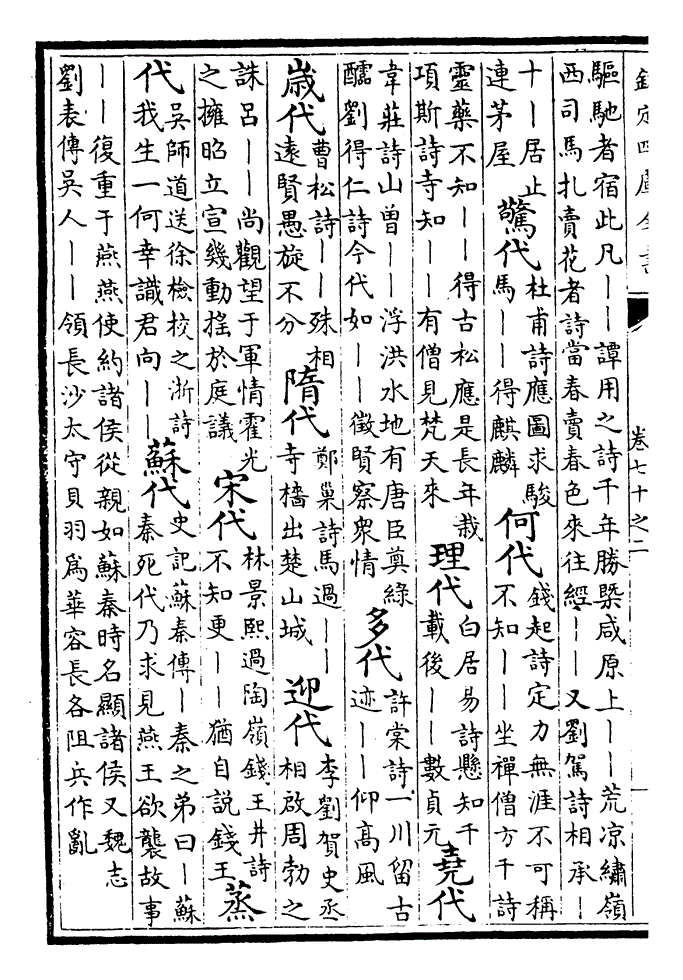 欽定四庫全書
卷七十之二
驅馳者宿此凡――譚用之詩千年勝槩咸原上――荒凉繡嶺
西司馬扎賣花者詩當春賣春色來往經――又劉駕詩相承―
十―居止
連茅屋
驚代
杜甫詩應圖求駿
馬――得麒麟
何代
錢起詩定力無涯不可稱
不知――坐禪僧方千詩
靈藥不知――得古松應是長年栽
項斯詩寺知――有僧見梵天來
理代
白居易詩懸知千
載後――數貞元
堯代
韋莊詩山曾――浮洪水地有唐臣奠綠
醽劉得仁詩今代如――徵賢察衆情
多代
許棠詩一川留古
迹――仰高風
嵗代
曹松詩――殊相
遠賢愚旋不分
隋代
鄭巢詩馬過――
寺檣出楚山城
迎代
李劉賀史丞
相啟周勃之
誅呂――尚觀望于軍情霍光
之擁昭立宣幾動搖於庭議
宋代
林景熙過陶嶺錢王井詩
不知更――猶自説錢王
蒸
代
吳師道送徐檢校之浙詩
我生一何幸識君向――
蘇代
史記蘇秦傳―秦之弟曰―蘇
秦死代乃求見燕王欲襲故事
――復重于燕燕使約諸侯從親如蘇秦時名顯諸侯又魏志
劉表傳吳人――領長沙太守貝羽爲華容長各阻兵作亂